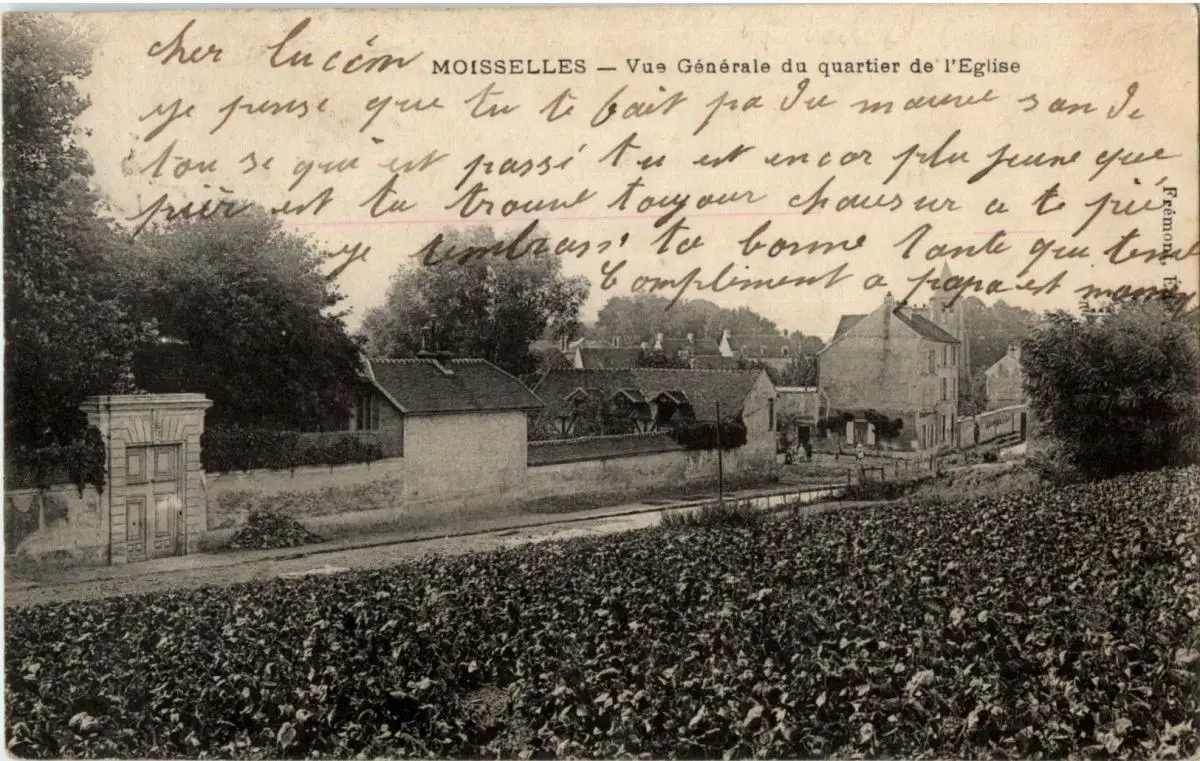 cher Lucien
MOISSELLES — Vue Générale du quartier de l'Eglise
je pense que tu te fait pa du mauve san de
ton se qui est passé tu est encor plu jeune que
pier est tu trouve toujour chausur a te pié
je tembrass ta bonne tante que
Compliment a papa est maman
Frémont